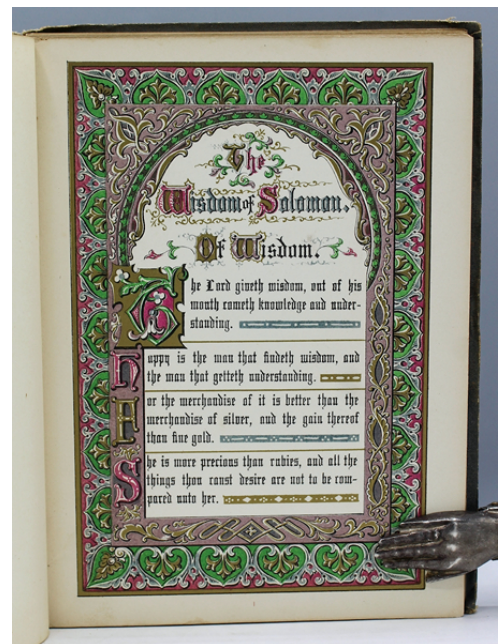 The
Wisdom of Solomon.
Of Wisdom.
The Lord giveth wisdom, out of his
mouth cometh knowledge and under-
standing.
Happy is the man that findeth wisdom, and
the man that getteth understanding.
For the merchandise of it is better than the
merchandise of silver, and the gain thereof
than fine gold.
She is more precious than rubies, and all the
things thou canst desire are not to be com-
pared unto her.